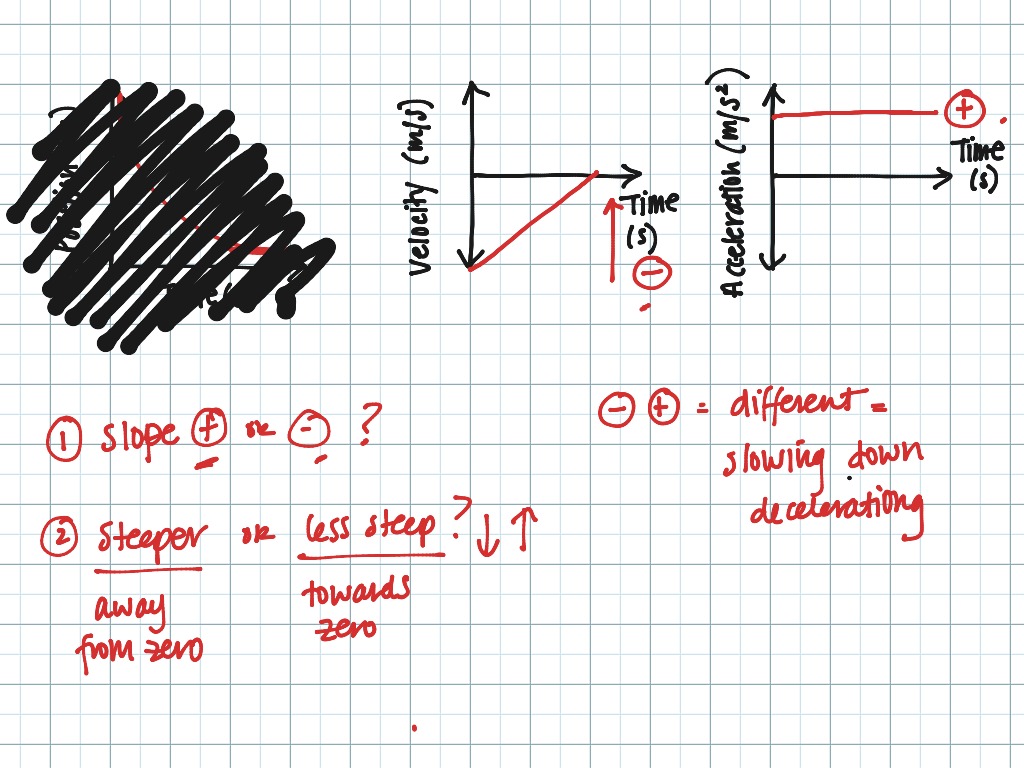 Velocity (m/s)
Time
(s)
−
Acceleration (m/s²)
+
Time
(s)
① slope + or − ?
② steeper or less steep ? ↓ ↑
away
from zero
towards
zero
− + = different =
slowing down
decelerationg